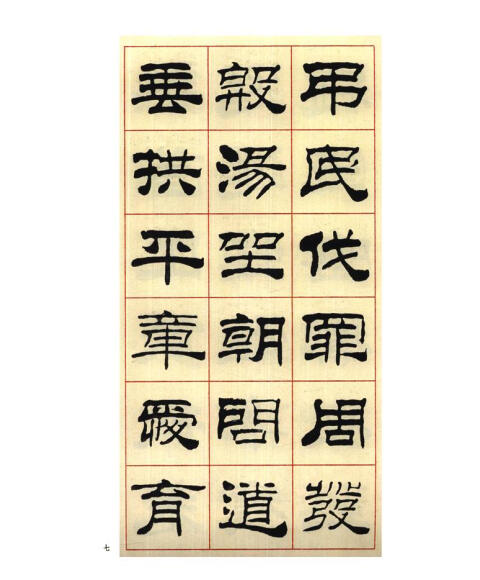 弔民伐罪周發
殷湯坐朝問道
垂拱平章愛育
七